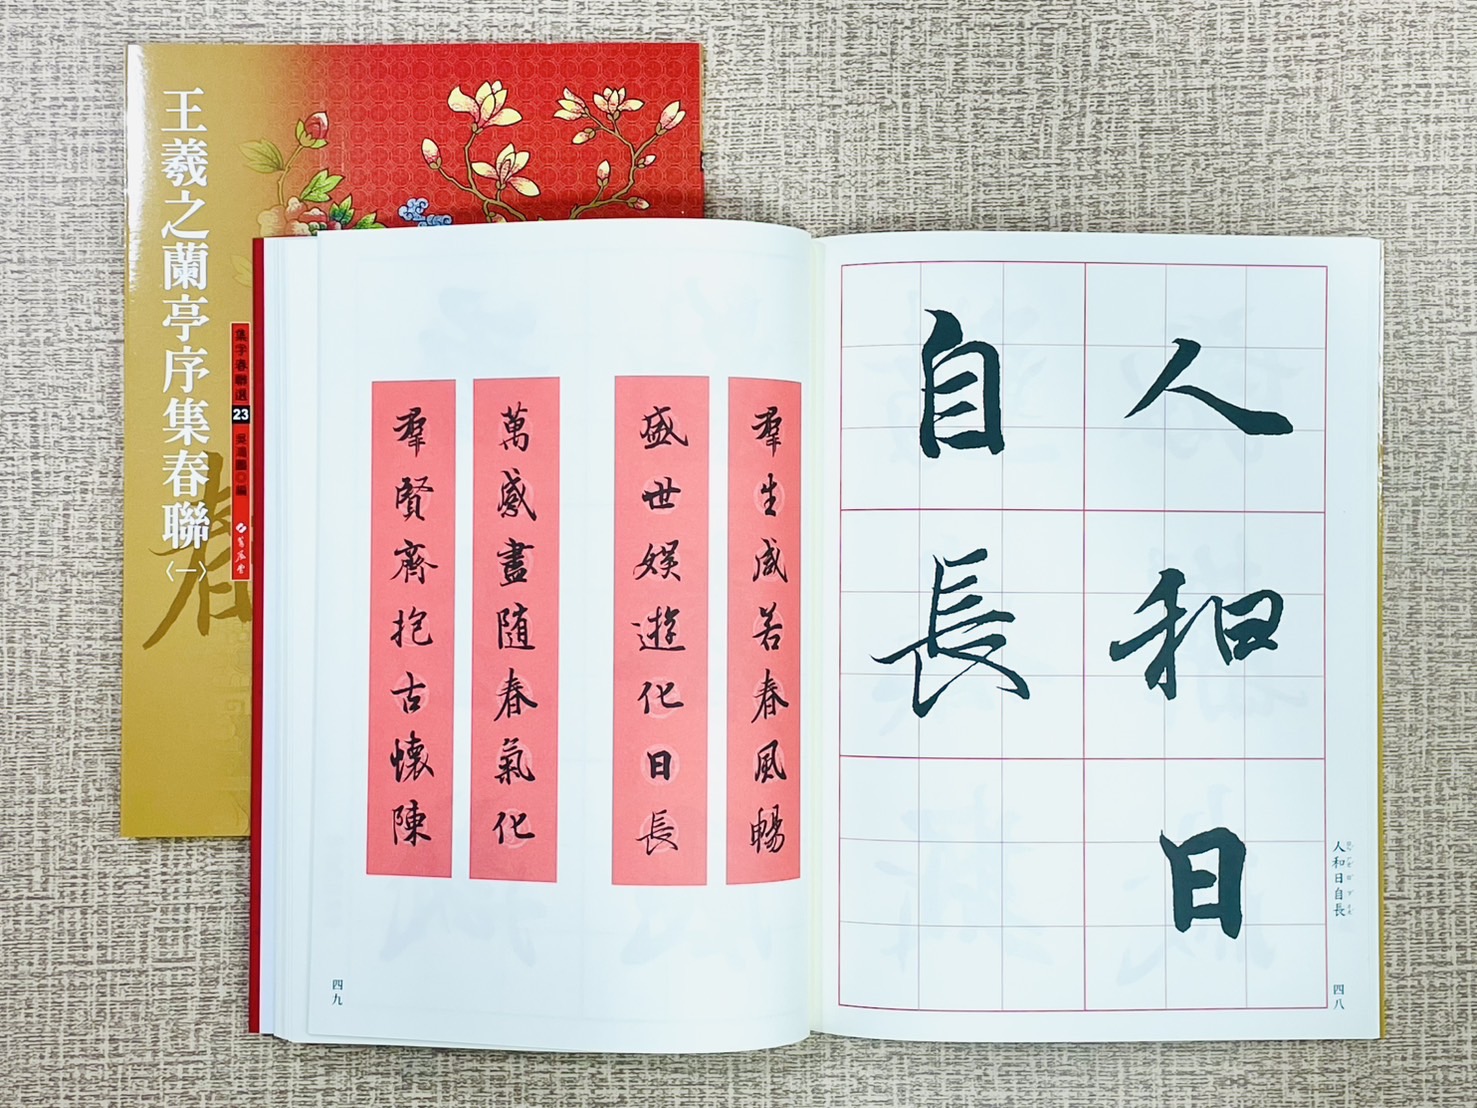 王羲之蘭亭序集春聯〈一〉
集字春聯選 23 吳鴻圖◎編
蕙風堂
人和日
自長
人和日自長
四八
羣生咸若春風暢
盛世娛遊化日長
萬感盡隨春氣化
羣賢齊抱古懷陳
四九